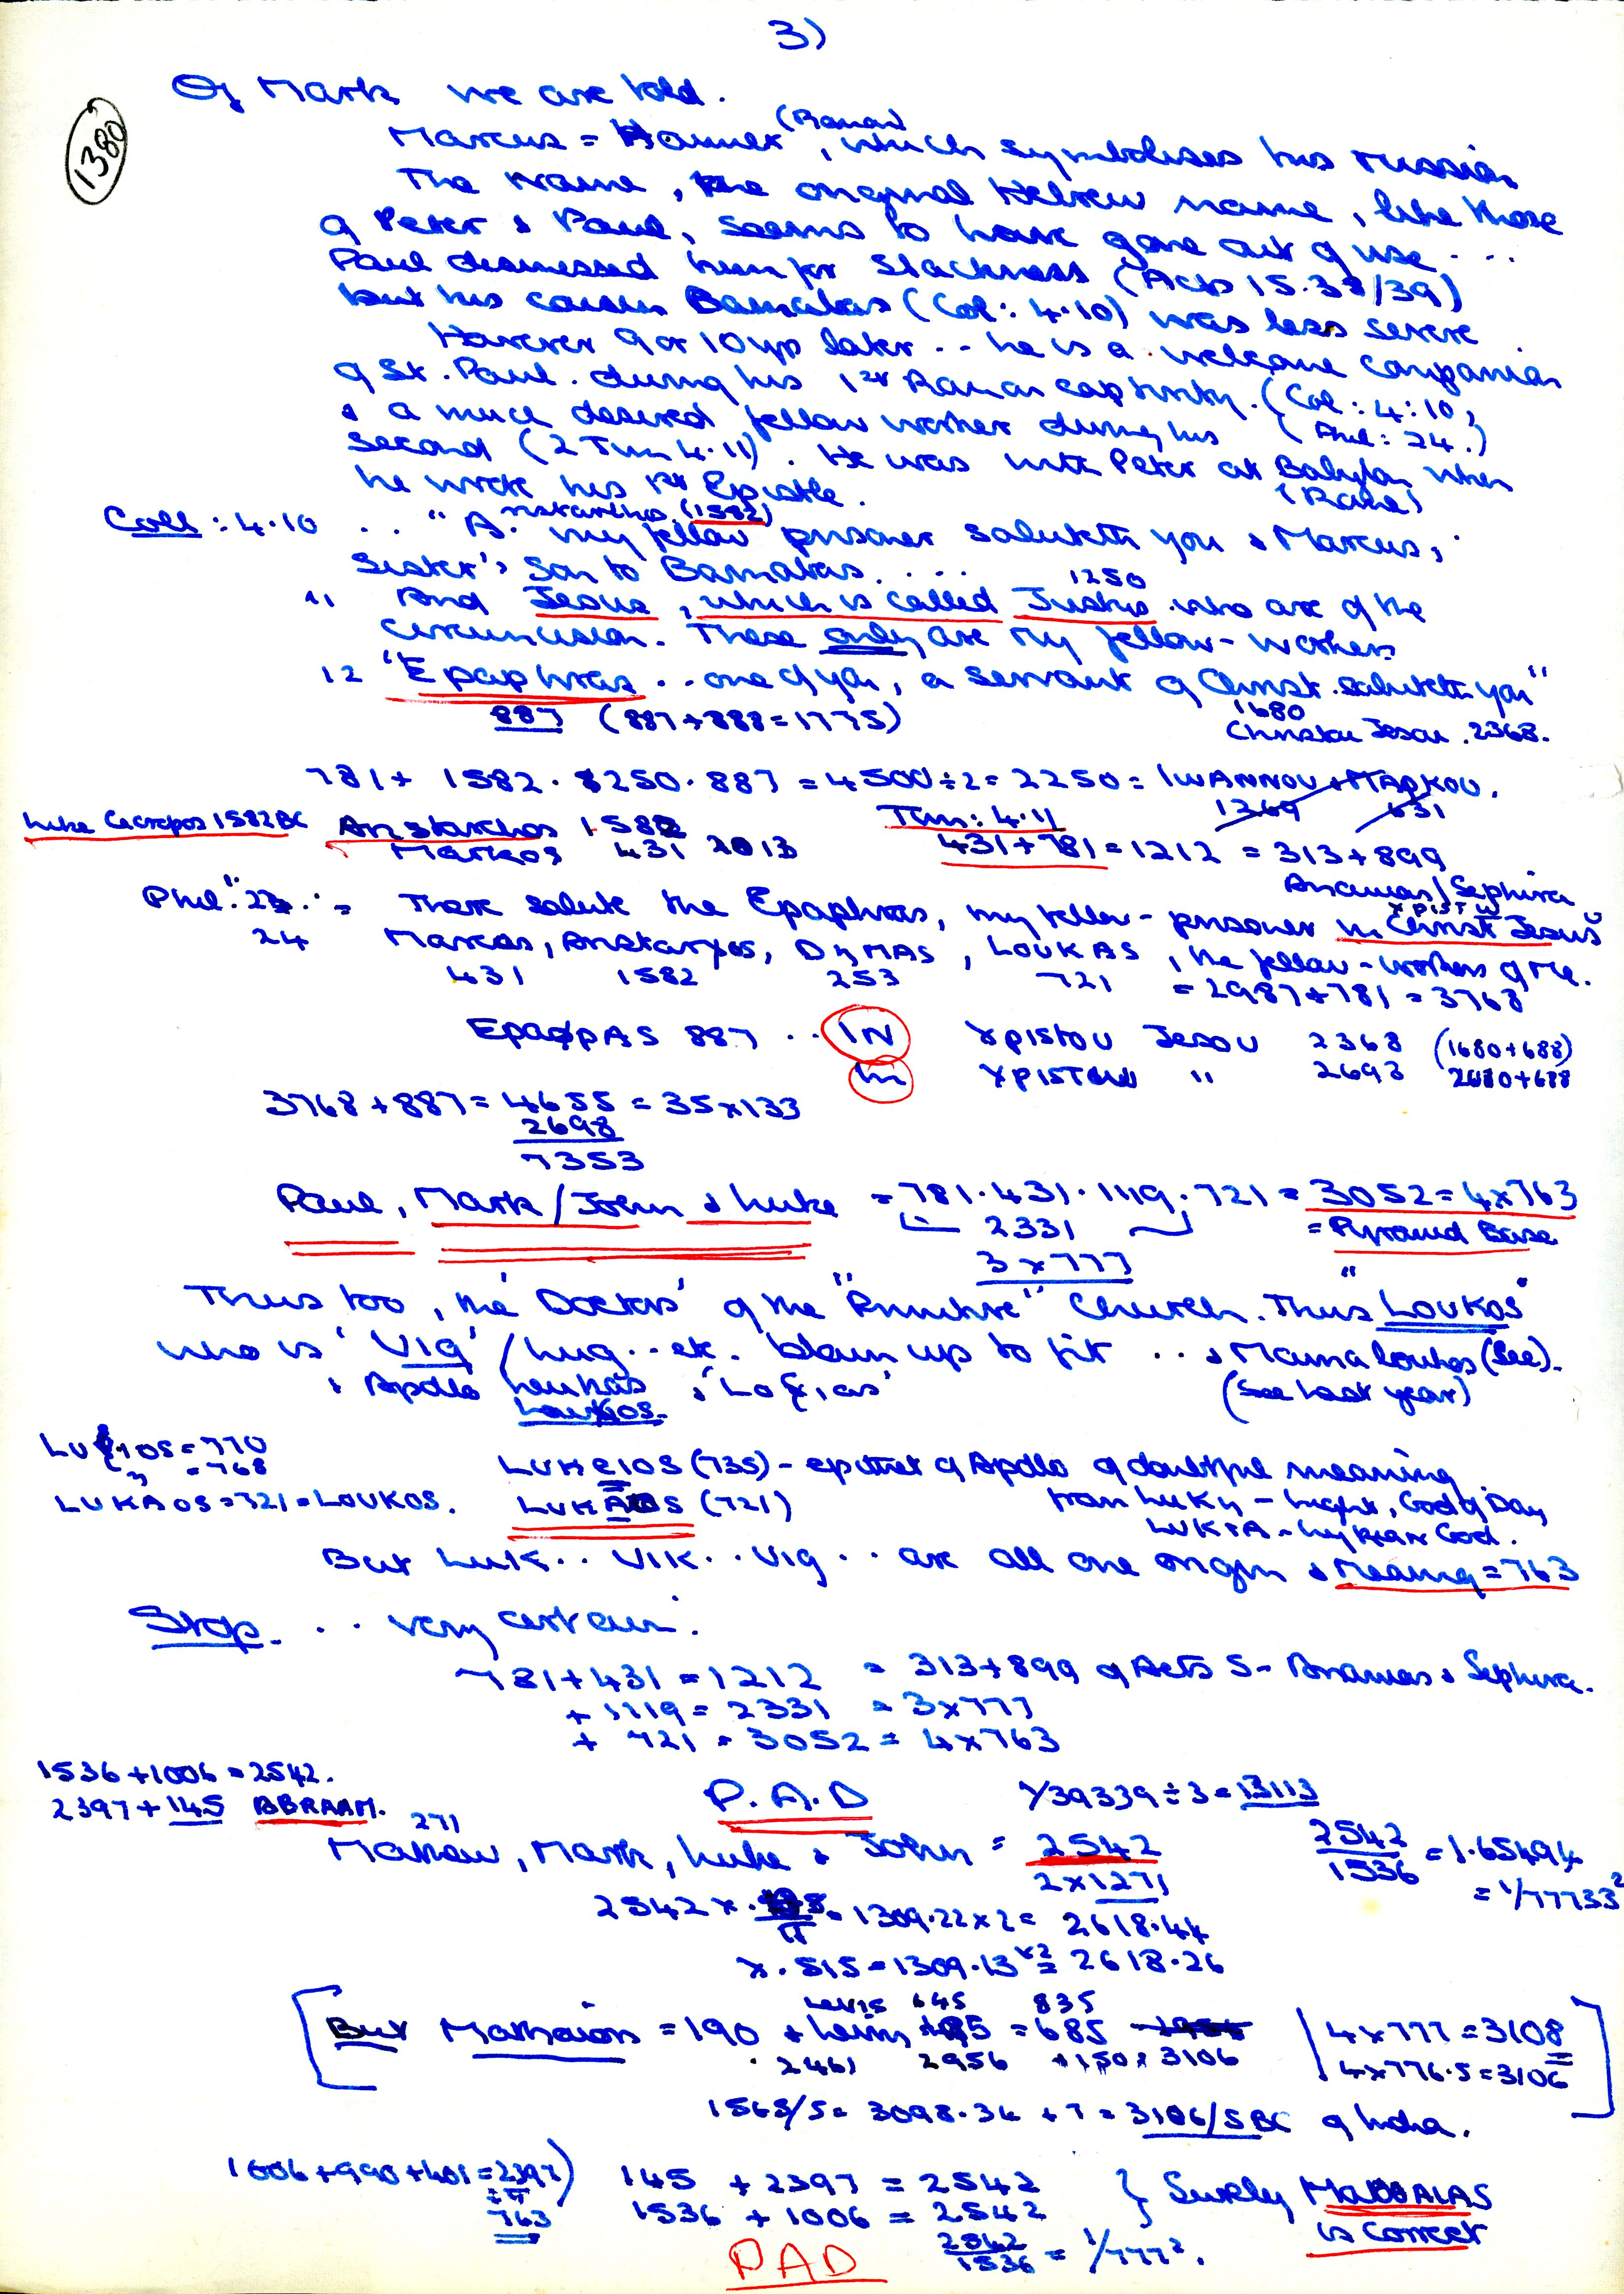 3)
1380
Of Mark we are told.
Marcus = Hammer (Roman), which symbolises his mission
The Name, the original Hebrew name, like those
of Peter & Paul, seems to have gone out of use ...
Paul dismissed him for slackness (Acts 15.38/39)
but his cousin Barnabas (Col: 4.10) was less severe
However 9 or 10 yrs later .. he is a welcome companion
of St. Paul. during his 1st Roman captivity. (Col: 4:10,
& a much desired fellow worker during his (Phil: 24.)
second (2 Tim 4.11). He was with Peter at Babylon when
he wrote his 1st Epistle. (Rome)
Coll: 4.10 .. "A. ristarchos (1582) my fellow prisoner saluteth you & Marcus,
Sister's Son to Barnabas. ....
11 And Jesus, which is called Justus 1250 who are of the
circumcision. These only are my fellow-workers
12 "Epaphras .. one of you, a servant of Christ. saluteth you"
887 (887+888=1775) 1680
Christou Jesou. 2368.
781 + 1582. 1250. 887 = 4500÷2 = 2250 = IWANNOU + MARKOU.
1269 631
Luke Cecrops 1582BC Aristarchos 1582 Tim: 4.11
Markos 431 2013 431+781 = 1212 = 313+899
Ananias/Sephira
Phil: 23 .. = There salute thee Epaphras, my fellow-prisoner in Christ Jesus
24 Marcos, Aristarxos, DyMAS, LOUKAS, the fellow-workers of me.
431 1582 253 721 = 2987+781 = 3768
EpaφρAS 887 .. IN Χpistou Jesou 2368 (1680+688)
in ΧpisTWU " 2698 2010+688
3768+887 = 4655 = 35x133
2698
7353
Paul, Mark/John & Luke = 781.431.1119.721 = 3052 = 4x763
2331 = Pyramid Base
3x777
Thus too, the 'Doctors' of the "Primitive" Church. Thus "LOUKOS"
who is 'VIG' / hug .. etc. blown up to fit ... & Mama Loukos (See).
& Apollo Leukas & 'Loxias' (See last year)
Loukos.
LUKIOS = 770
" = 768
LUKEIOS (735) - epithet of Apollo of doubtful meaning
LUKAOS = 721 = LOUKOS. LUKAOS (721) from LuKy - Light, God of Day
LUKIA - Lykian God.
But LUK .. VIK .. Vig .. are all one origin & Meaning = 763
Stop. .. very certain.
781+431 = 1212 = 313+899 of Acts 5 - Ananias & Sephira.
+ 1119 = 2331 = 3x777
+ 721 = 3052 = 4x763
1536+1006 = 2542.
2397+145 ABRAAM.
P.A.D 1/39339 ÷ 3 = 13113
271
Mathew, Mark, Luke & John = 2542
2x1271
2542/1536 = 1.65494
= 1/77733²
1309.22x2 = 2618.44
x.515 = 1309.13 x2 = 2618.26
Levis 645 835
But Mathaion = 190 + Levin 495 = 685
2461 2956 +150 = 3106
4x777 = 3108
4x776.5 = 3106
1565/5 = 3098.34 + 7 = 3106/5BC of India.
1006+990+401 = 2397
÷π
763
145 + 2397 = 2542
1536 + 1006 = 2542
} Surely MaθθAIAS
is Correct
2542/1536 = 1/777².
PAD